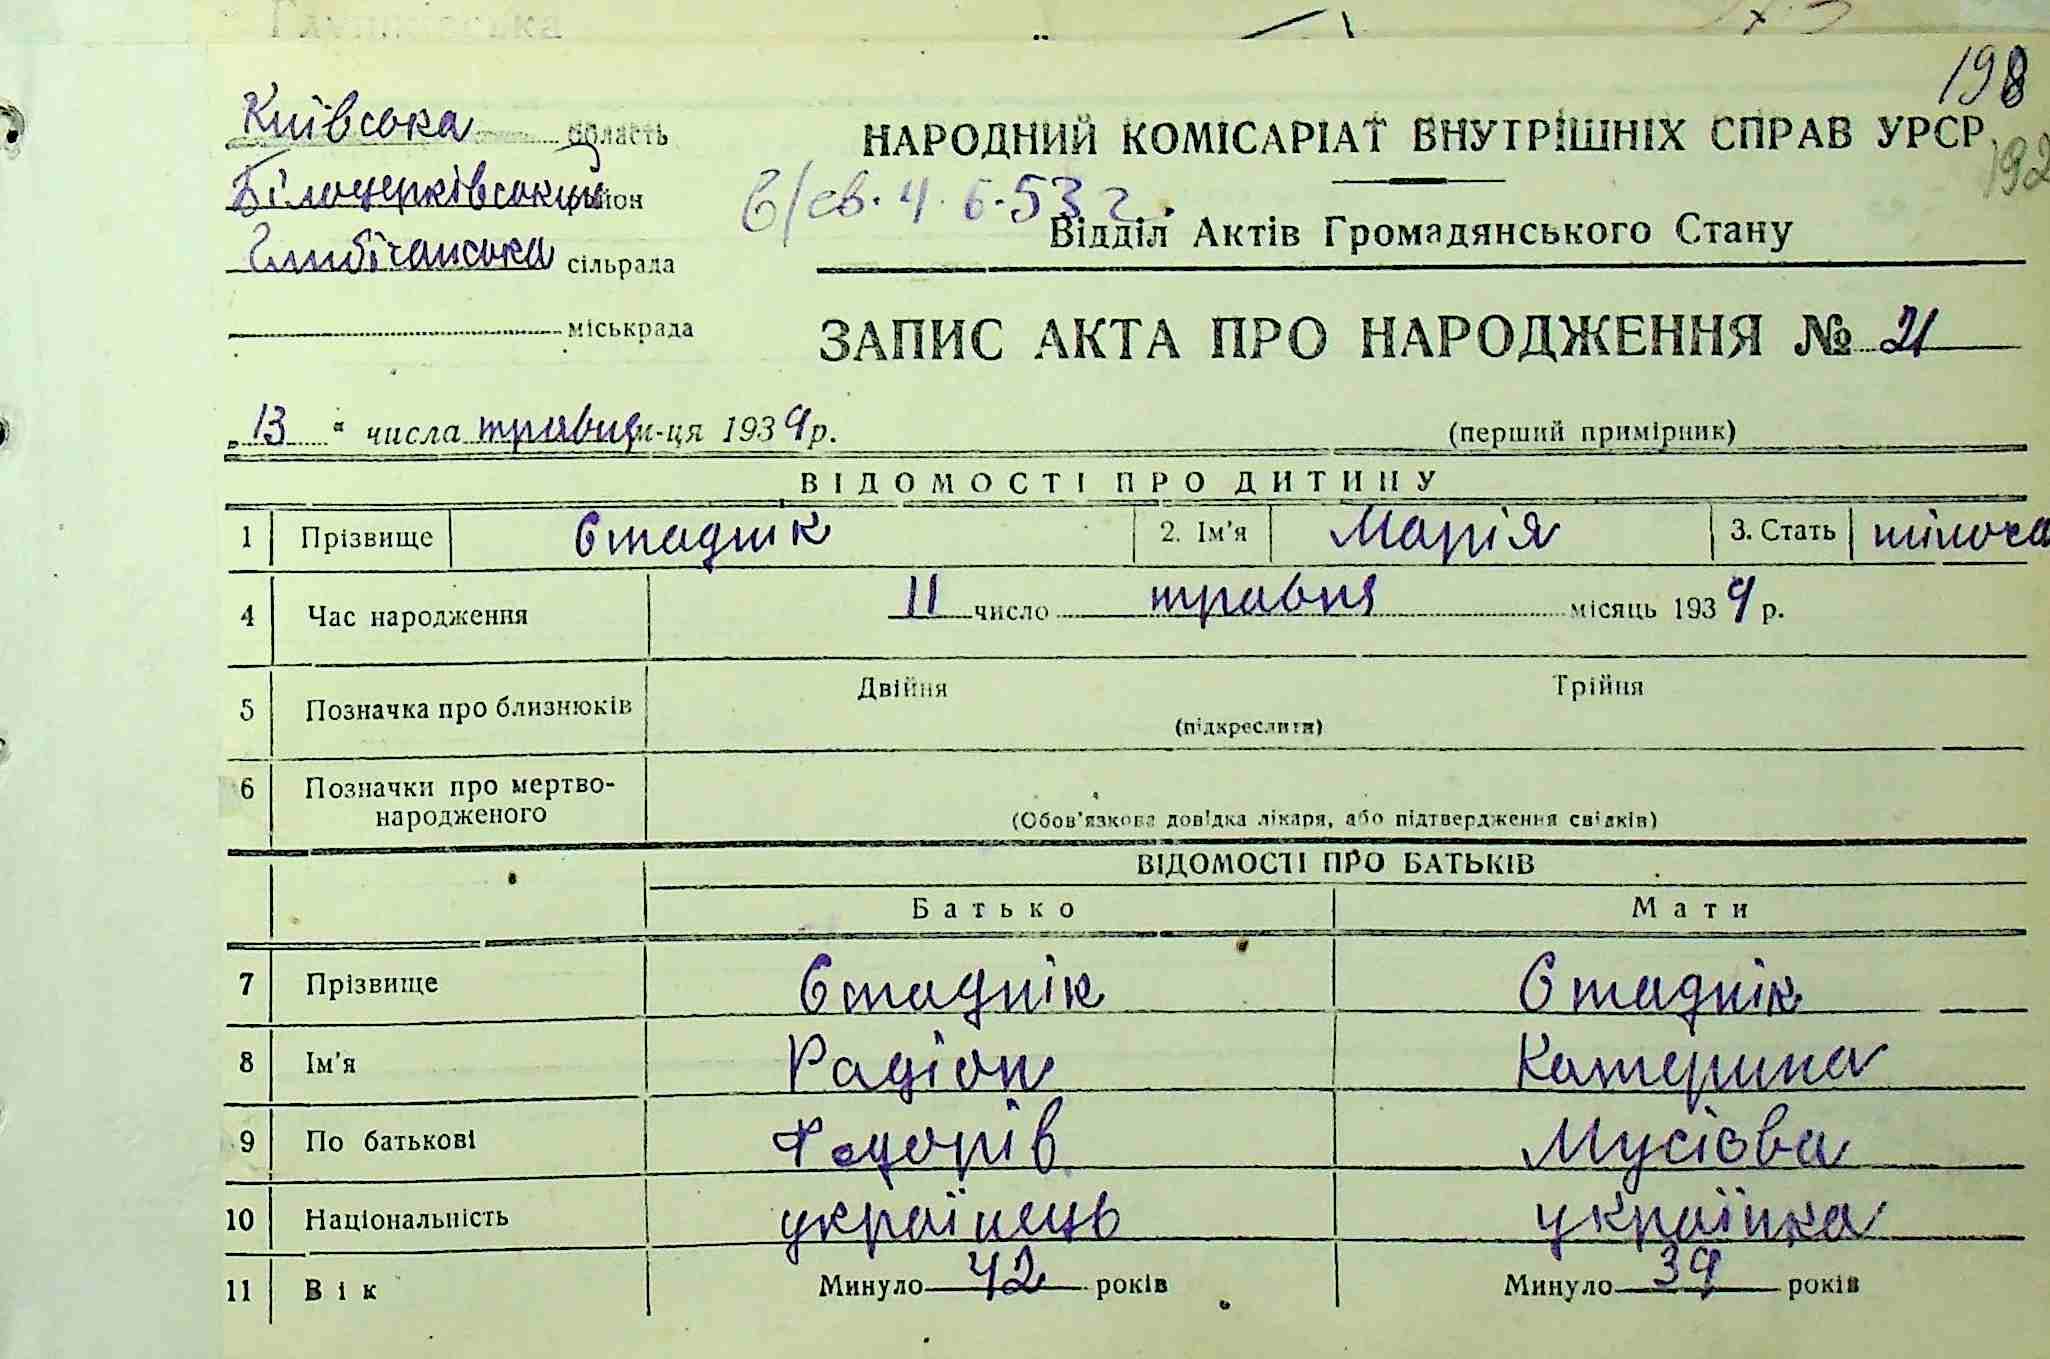 198
192
Київська область
Білоцерківський район
Глибочанська сільрада
міськрада
НАРОДНИЙ КОМІСАРІАТ ВНУТРІШНІХ СПРАВ УРСР
в/св. 4.6.53 г.
Відділ Актів Громадянського Стану
ЗАПИС АКТА ПРО НАРОДЖЕННЯ № 21
„13“ числа травня м-ця 1939 р.
(перший примірник)
ВІДОМОСТІ ПРО ДИТИНУ
1 Прізвище Стаднік 2. Ім'я Марія 3. Стать жіноча
4 Час народження 11 число травня місяць 1939 р.
5 Позначка про близнюків Двійня Трійня
(підкреслити)
6 Позначки про мертво-
народженого
(Обов'язкова довідка лікаря, або підтвердження свідків)
ВІДОМОСТІ ПРО БАТЬКІВ
Батько Мати
7 Прізвище Стаднік Стаднік
8 Ім'я Радіон Катерина
9 По батькові Федорів Мусієва
10 Національність українець українка
11 Вік Минуло 42 років Минуло 39 років